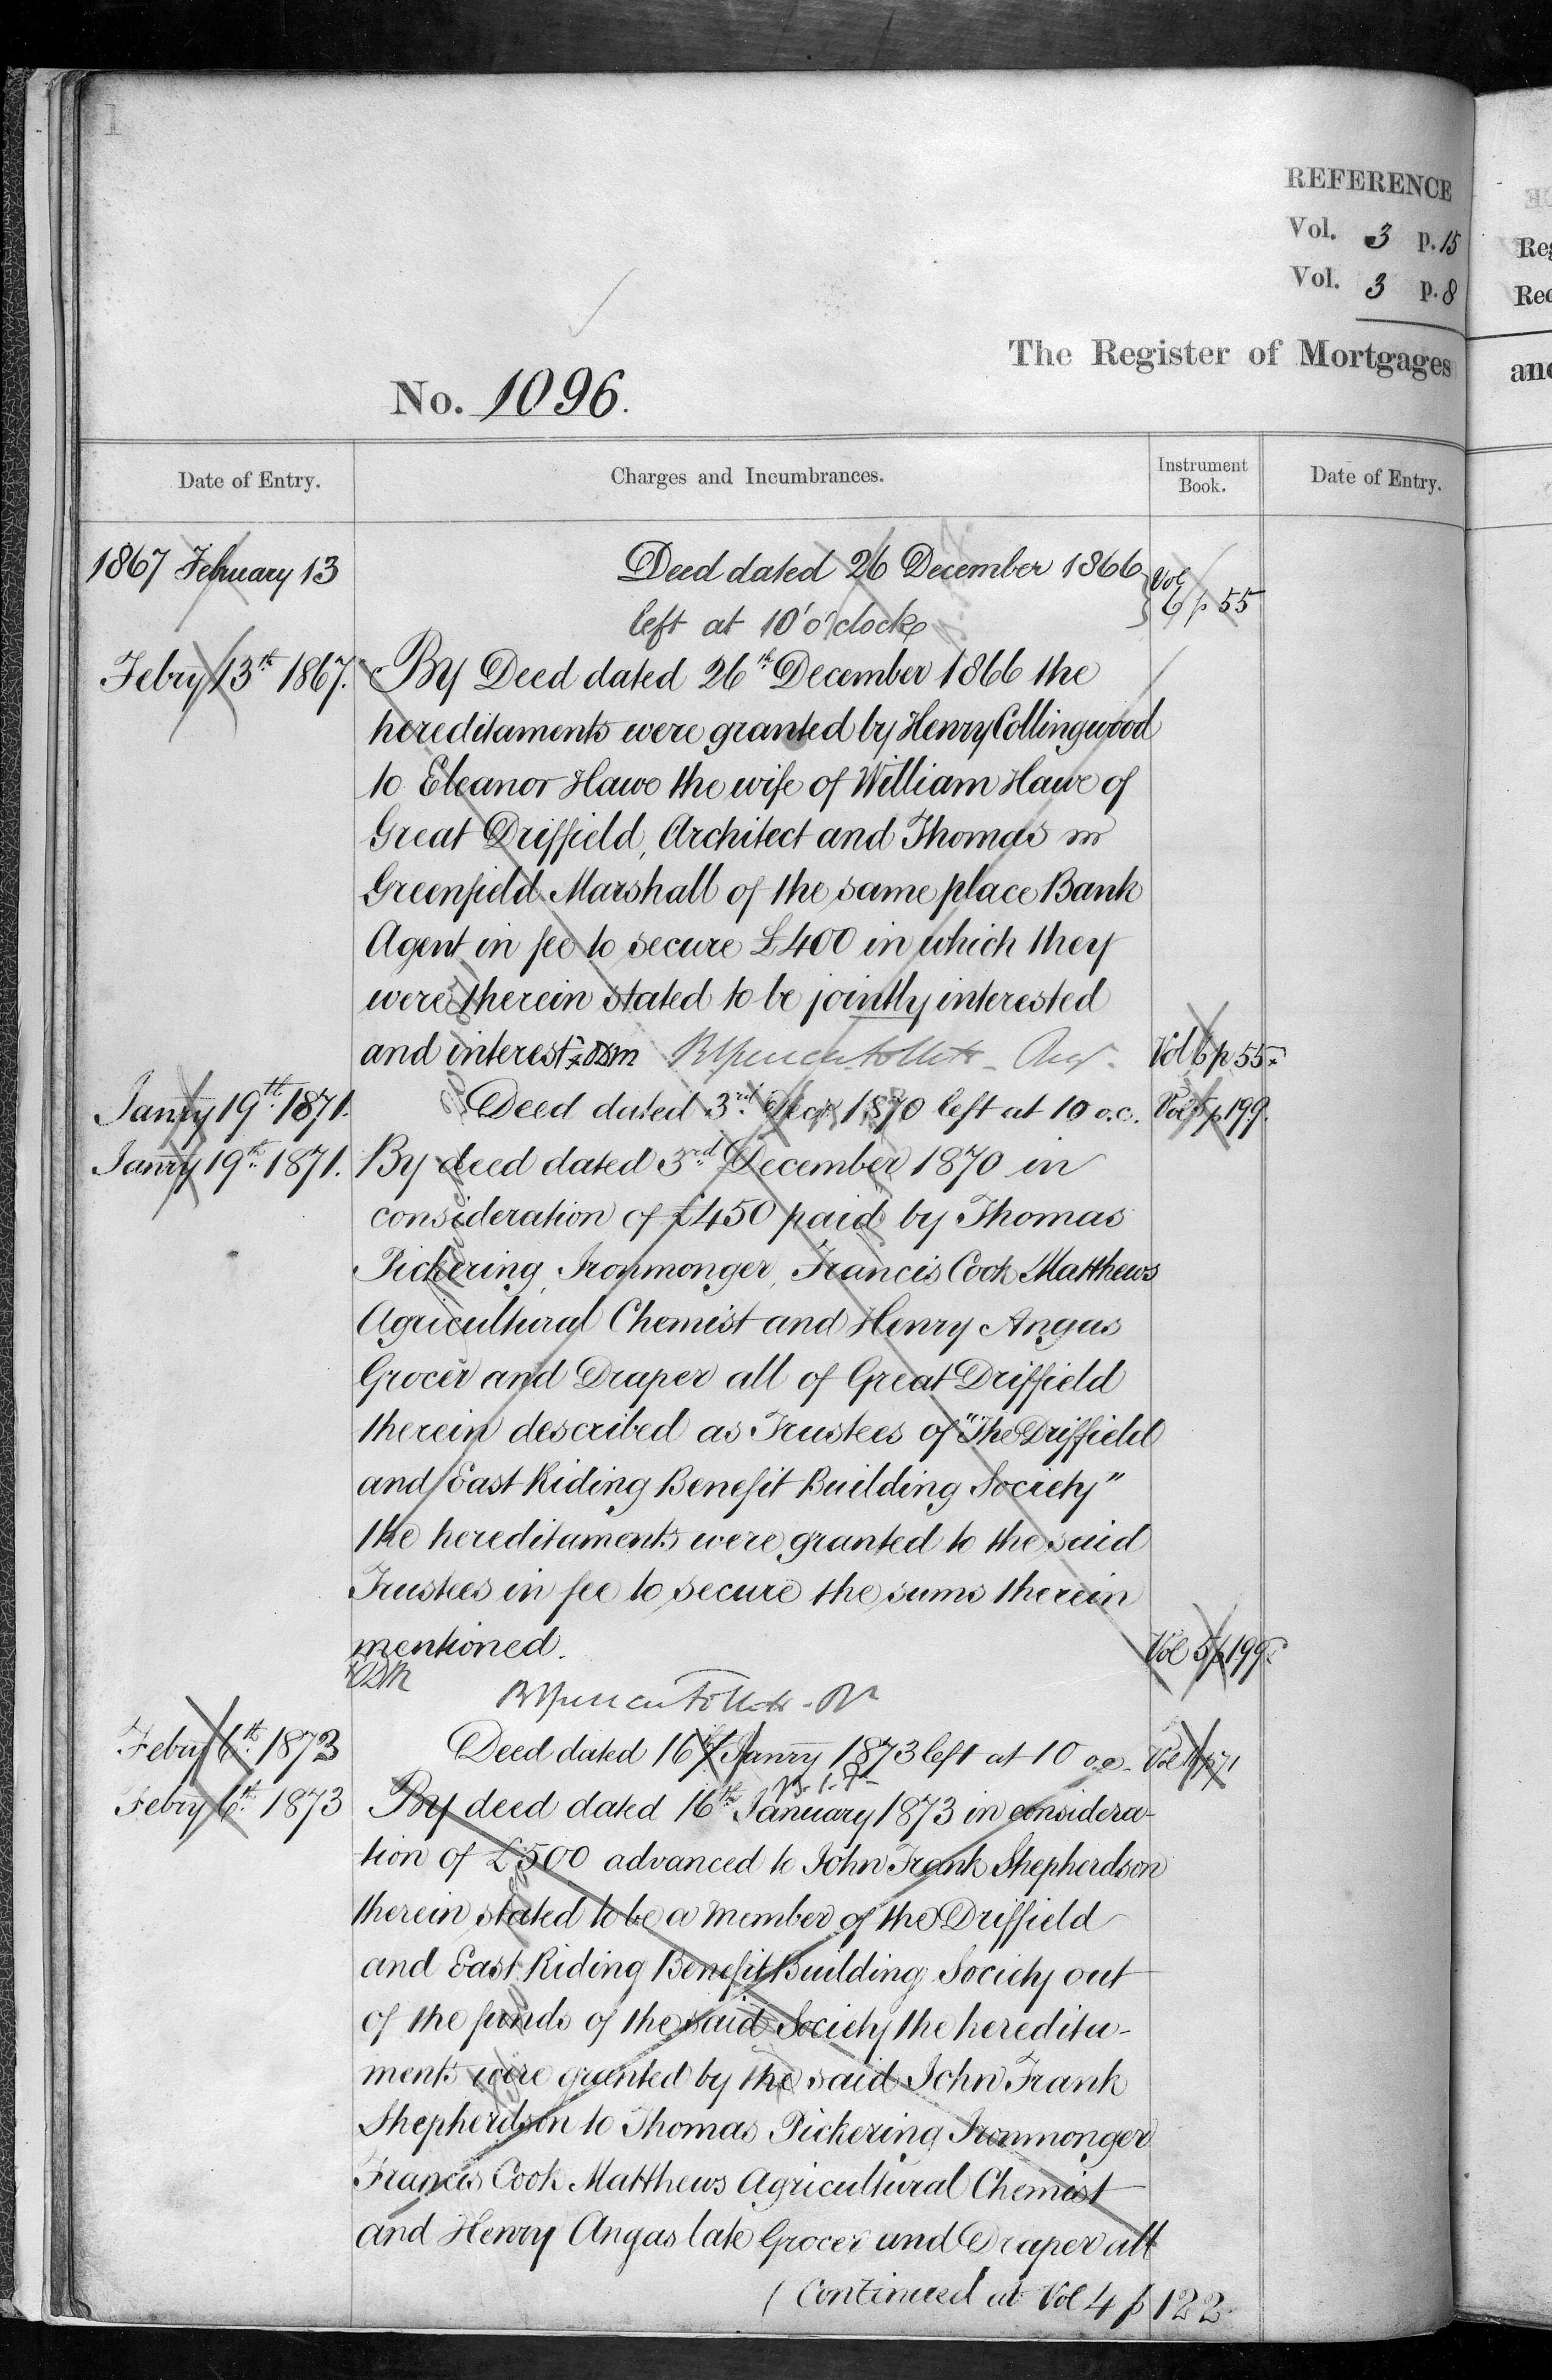 REFERENCE
Vol. 3 p. 15
Vol. 3 p. 8
The Register of Mortgages
No. 1096.
Date of Entry. Charges and Incumbrances. Instrument Book. Date of Entry.
1867 February 13 Deed dated 26 December 1866 Vol
left at 10 o'clock 6 p 55
Febry 13th 1867. By Deed dated 26th December 1866 the
hereditaments were granted by Henry Collingwood
to Eleanor Hawe the wife of William Hawe of
Great Driffield, Architect and Thomas
Greenfield Marshall of the same place Bank
Agent in fee to secure £400 in which they
were therein stated to be jointly interested
and interest Vol 6 p 55
Janry 19th 1871. Deed dated 3rd Decr 1870 left at 10 o.c. Vol 5 p 199.
Janry 19th 1871. By deed dated 3rd December 1870 in
consideration of £450 paid by Thomas
Pickering, Ironmonger, Francis Cook Matthews
Agricultural Chemist and Henry Angas
Grocer and Draper all of Great Driffield
therein described as Trustees of "The Driffield
and East Riding Benefit Building Society"
the hereditaments were granted to the said
Trustees in fee to secure the sums therein
mentioned. Vol 5 p 199
Febry 6th 1873 Deed dated 16th Janry 1873 left at 10 o.c. Vol p 71
Febry 6th 1873 By deed dated 16th January 1873 in considera-
tion of £500 advanced to John Frank Shepherdson
therein stated to be a member of the Driffield
and East Riding Benefit Building Society out
of the funds of the said Society the heredita-
ments were granted by the said John Frank
Shepherdson to Thomas Pickering Ironmonger
Francis Cook Matthews Agricultural Chemist
and Henry Angas late Grocer and Draper all
(Continued at Vol 4 p 122
and